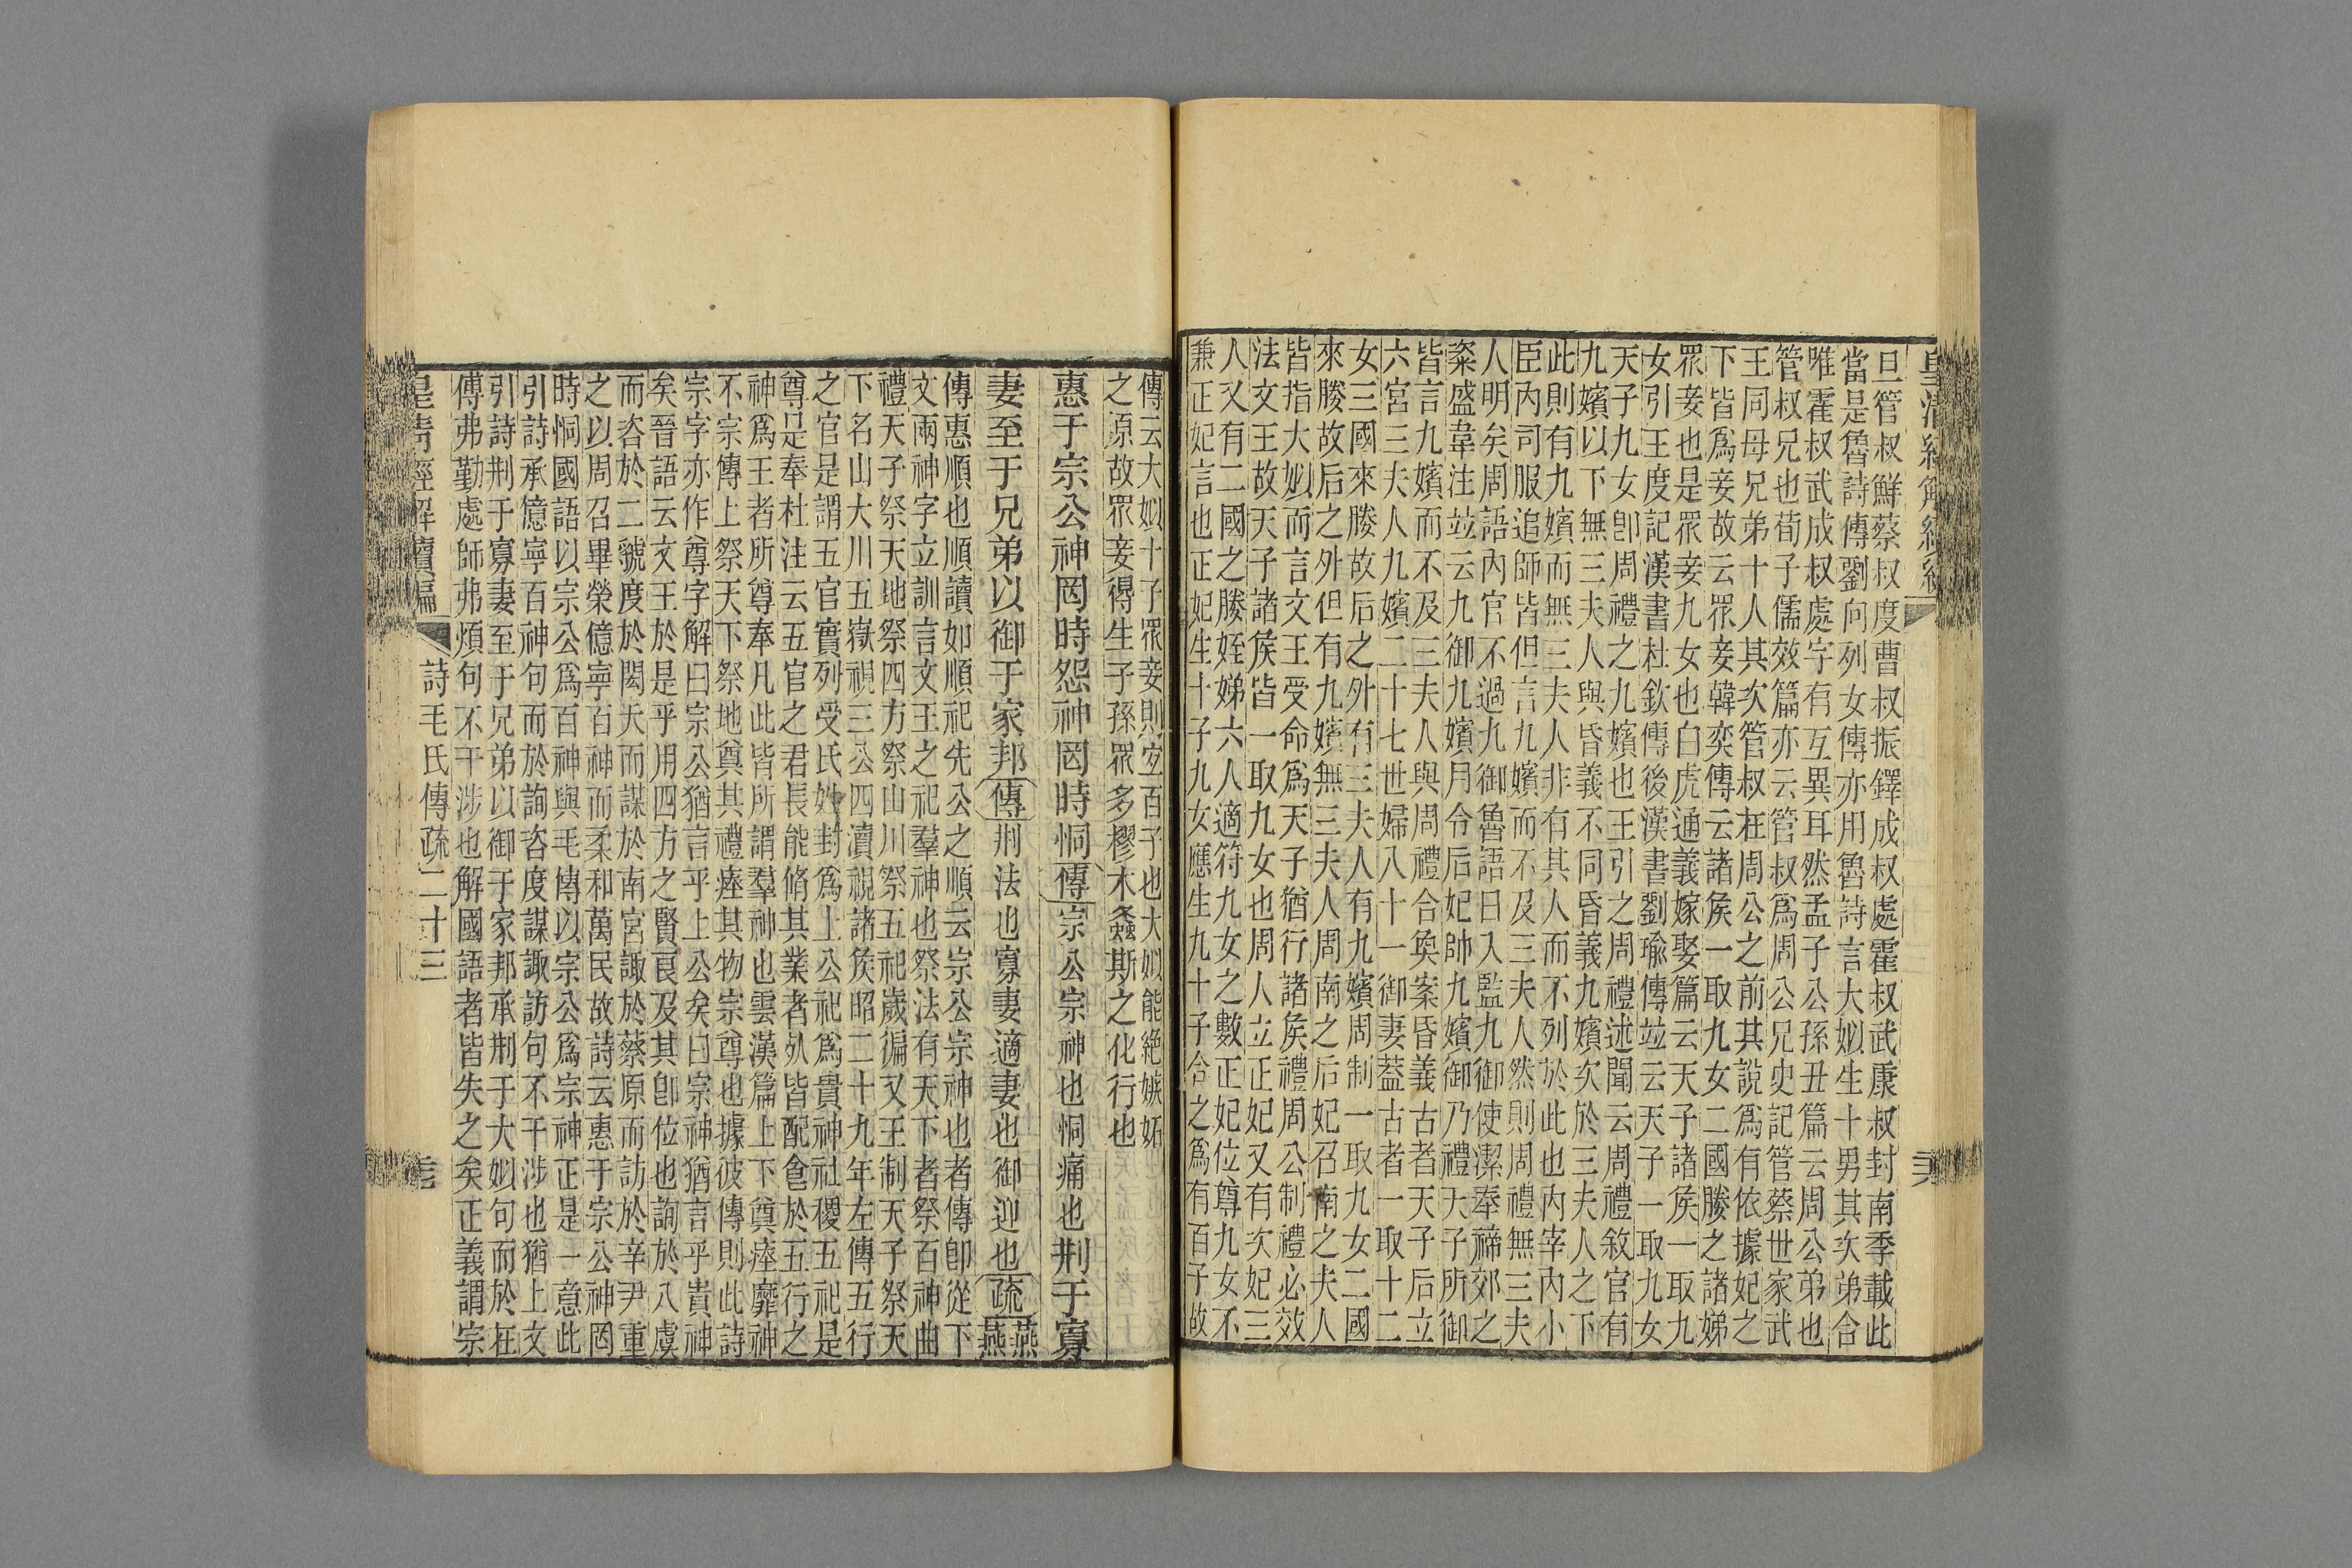 皇清經解續編
旦管叔鮮蔡叔度曹叔振鐸成叔處霍叔武康叔封南季載此
當是魯詩傳劉向列女傳亦用魯詩言大姒生十男其次弟合
唯霍叔武成叔處字有互異耳然孟子公孫丑篇云周公弟也
管叔兄也荀子儒效篇亦云管叔爲周公兄史記管蔡世家武
王同母兄弟十人其次管叔在周公之前其說爲有依據妃之
下皆爲妾故云眾妾韓奕傳云諸矦一取九女二國媵之諸娣
眾妾也是眾妾九女也白虎通義嫁娶篇云天子諸矦一取九
女引王度記漢書杜欽傳後漢書劉瑜傳竝云天子一取九女
天子九女卽周禮之九嬪也王引之周禮述聞云周禮敘官有
九嬪以下無三夫人與昏義不同昏義九嬪次於三夫人之下
此則有九嬪而無三夫人非有其人而不列於此也內宰內小
臣內司服追師皆但言九嬪而不及三夫人然則周禮無三夫
人明矣周語內官不過九御魯語日入監九御使潔奉禘郊之
粢盛韋注竝云九御九嬪月令后妃帥九嬪御乃禮天子所御
皆言九嬪而不及三夫人與周禮合奐案昏義古者天子后立
六宮三夫人九嬪二十七世婦八十一御妻蓋古者一取十二
女三國來媵故后之外有三夫人有九嬪周制一取九女二國
來媵故后之外但有九嬪無三夫人周南之后妃召南之夫人
皆指大姒而言文王受命爲天子猶行諸矦禮周公制禮必效
法文王故天子諸矦皆一取九女也周人立正妃又有次妃三
人又有二國之媵姪娣六人適符九女之數正妃位尊九女不
兼正妃言也正妃生十子九女應生九十子合之爲有百子故
傳云大姒十子眾妾則宜百子也大姒能絶嫉妬
之原故眾妾得生子孫眾多樛木螽斯之化行也
惠于宗公神罔時怨神罔時恫傳宗公宗神也恫痛也荆于寡
妻至于兄弟以御于家邦傳荆法也寡妻適妻也御迎也疏燕燕
傳惠順也順讀如順祀先公之順云宗公宗神也者傳卽從下
文兩神字立訓言文王之祀羣神也祭法有天下者祭百神曲
禮天子祭天地祭四方祭山川祭五祀歲徧又王制天子祭天
下名山大川五嶽視三公四瀆視諸矦昭二十九年左傳五行
之官是謂五官實列受氏姓封爲上公祀爲貴神社稷五祀是
尊是奉杜注云五官之君長能脩其業者死皆配食於五行之
神爲王者所尊奉凡此皆所謂羣神也雲漢篇上下奠瘞靡神
不宗傳上祭天下祭地奠其禮瘞其物宗尊也據彼傳則此詩
宗字亦作尊字解曰宗公猶言乎上公矣曰宗神猶言乎貴神
矣晉語云文王於是乎用四方之賢良及其卽位也詢於八虞
而咨於二虢度於閎夭而謀於南宮諏於蔡原而訪於辛尹重
之以周召畢榮億寧百神而柔和萬民故詩云惠于宗公神罔
時恫國語以宗公爲百神與毛傳以宗公爲宗神正是一意此
引詩承億寧百神句而於詢咨度謀諏訪句不干涉也猶上文
引詩荆于寡妻至于兄弟以御于家邦承荆于大姒句而於在
傅弗勤處師弗煩句不干涉也解國語者皆失之矣正義謂宗
皇清經解續編 詩毛氏傳疏二十三